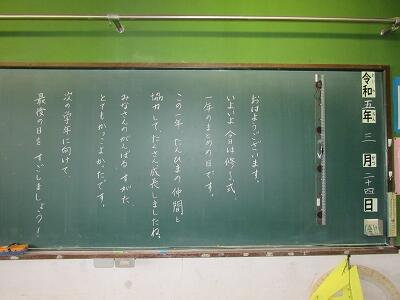 令和五年三月二十四日
おはようございます。
いよいよ今日は修了式、
一年のまとめの日です。
この一年、たんぽぽの仲間と
協力して、たくさん成長しましたね。
みなさんのがんばるすがた、
とてもかっこよかったです。
次の学年に向けて
最後の日をすごしましょう!